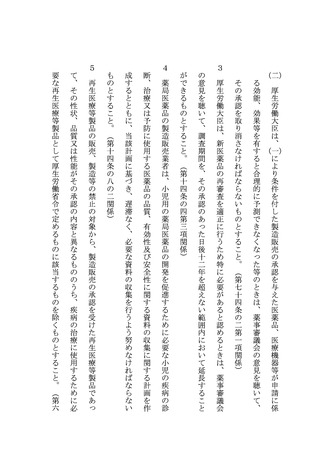 ㈡　厚生労働大臣は、㈠により条件を付した製造販売の承認を与えた医薬品、医療機器等が申請に係
る効能、効果等を有すると合理的に予測できなくなった等のときは、薬事審議会の意見を聴いて、
その承認を取り消さなければならないものとすること。（第七十四条の二第一項関係）
３　厚生労働大臣は、新医薬品の再審査を適正に行うため特に必要があると認めるときは、薬事審議会
の意見を聴いて、調査期間を、その承認のあった日後十二年を超えない範囲内において延長すること
ができるものとすること。（第十四条の四第三項関係）
４　薬局医薬品の製造販売業者は、小児用の薬局医薬品の開発を促進するために必要な小児の疾病の診
断、治療又は予防に使用する医薬品の品質、有効性及び安全性に関する資料の収集に関する計画を作
成するとともに、当該計画に基づき、遅滞なく、必要な資料の収集を行うよう努めなければならない
ものとすること。（第十四条の八の二関係）
５　再生医療等製品の販売、製造等の禁止の対象から、製造販売の承認を受けた再生医療等製品であっ
て、その性状、品質又は性能がその承認の内容と異なるもののうち、疾病の治療に使用するために必
要な再生医療等製品として厚生労働省令で定めるものに該当するものを除くものとすること。（第六